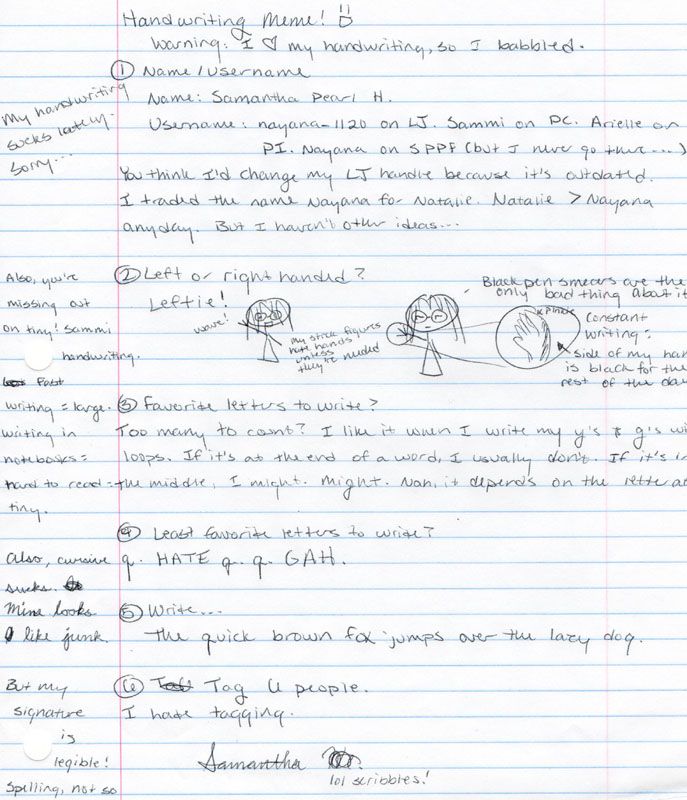 Handwriting Meme! :D
Warning: I ♡ my handwriting, so I babbled.
① Name/Username
Name: Samantha Pearl H.
Username: nayana-1120 on LJ. Sammi on PC. Arielle on
PI. Nayana on SPPF (but I never go there...)
You think I'd change my LJ handle because it's outdated.
I traded the name Nayana for Natalie. Natalie > Nayana
anyday. But I haven't other ideas...
My handwriting
sucks lately.
Sorry...
② Left or right handed?
Leftie!
wave!
my stick figures
hate hands
unless
they're needed
Black pen smears are the
only bad thing about it
Constant
writing =
side of my han
is black for the
rest of the day
Also, you're
missing out
on tiny! Sammi
handwriting.
Fast
writing = large.
writing in
notebooks =
hard to read =
tiny.
③ Favorite letters to write?
Too many to count? I like it when I write my y's & g's wi
loops. If it's at the end of a word, I usually don't. If it's in
the middle, I might. Might. Nah, it depends on the letter a
④ Least favorite letters to write?
q. HATE q. q. GAH.
Also, cursive
sucks.
Mine looks
like junk.
⑤ Write...
The quick brown fox jumps over the lazy dog.
⑥ Tag 6 people.
I hate tagging.
But my
signature
is
legible!
Spelling, not so
Samantha
lol scribbles!